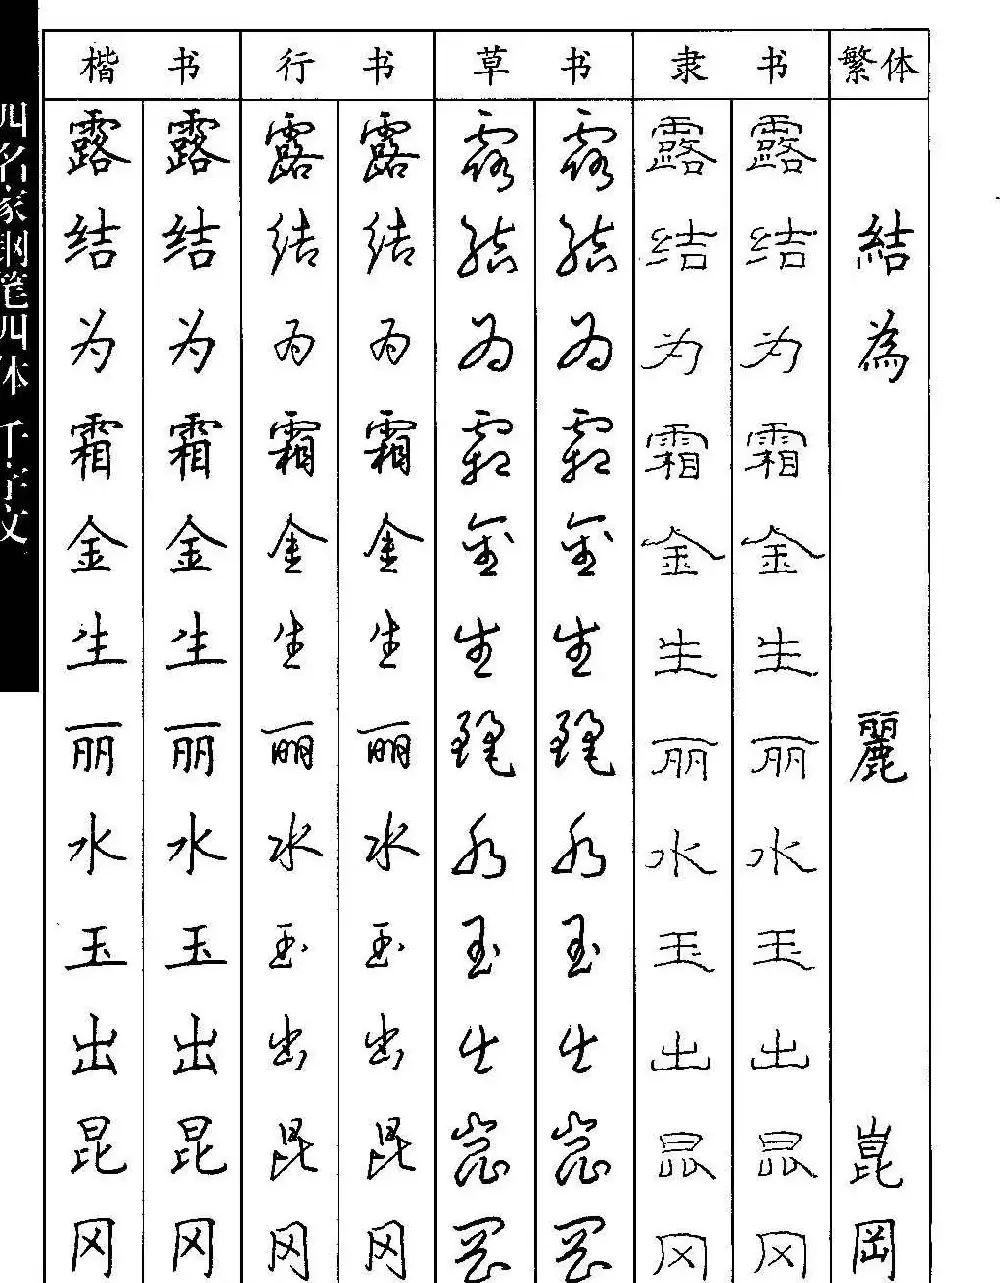 楷书 行书 草书 隶书 繁体
露 露 露 露 露 露 露 露
结 结 结 结 结 结 结 结 結
为 为 为 为 为 为 为 为 為
霜 霜 霜 霜 霜 霜 霜 霜
金 金 金 金 金 金 金 金
生 生 生 生 生 生 生 生
丽 丽 丽 丽 麗 麗 丽 丽 麗
水 水 水 水 水 水 水 水
玉 玉 玉 玉 玉 玉 玉 玉
出 出 出 出 出 出 出 出
昆 昆 昆 昆 崑 崑 昆 昆 崑
冈 冈 冈 冈 岡 岡 冈 冈 岡
四名家钢笔四体 千字文